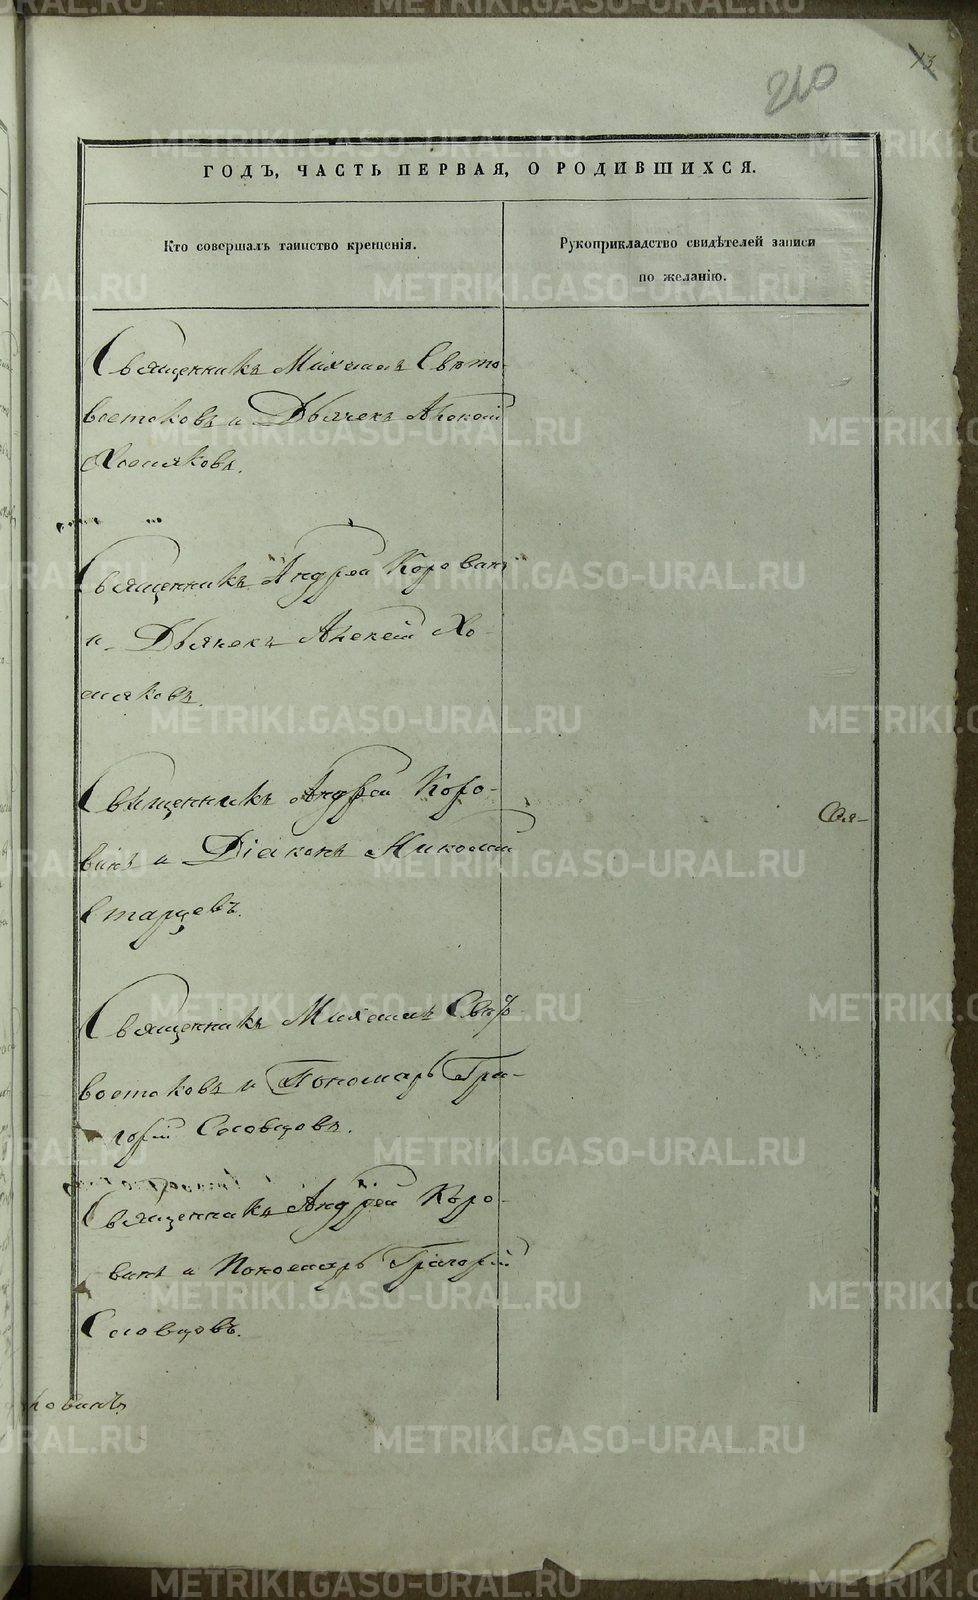 13
210
ГОДЪ, ЧАСТЬ ПЕРВАЯ, О РОДИВШИХСЯ.
Кто совершалъ таинство крещенія.
Рукоприкладство свидѣтелей записи
по желанію.
Священникъ Михаилъ Свѣто-
востоковъ и Дьячекъ Алексій
Хомяковъ.
Священникъ Андрей Коровинъ
и Дьячекъ Алексій Хо-
мяковъ.
Священникъ Андрей Коро-
винъ и Діаконъ Николай
Старцевъ.
Священникъ Михаилъ Свѣто-
востоковъ и Пономарь Гри-
горій Словцовъ.
Священникъ Андрей Коро-
винъ и Пономарь Григорій
Словцовъ.
Свя-
ковинъ
METRIKI.GASO-URAL.RU